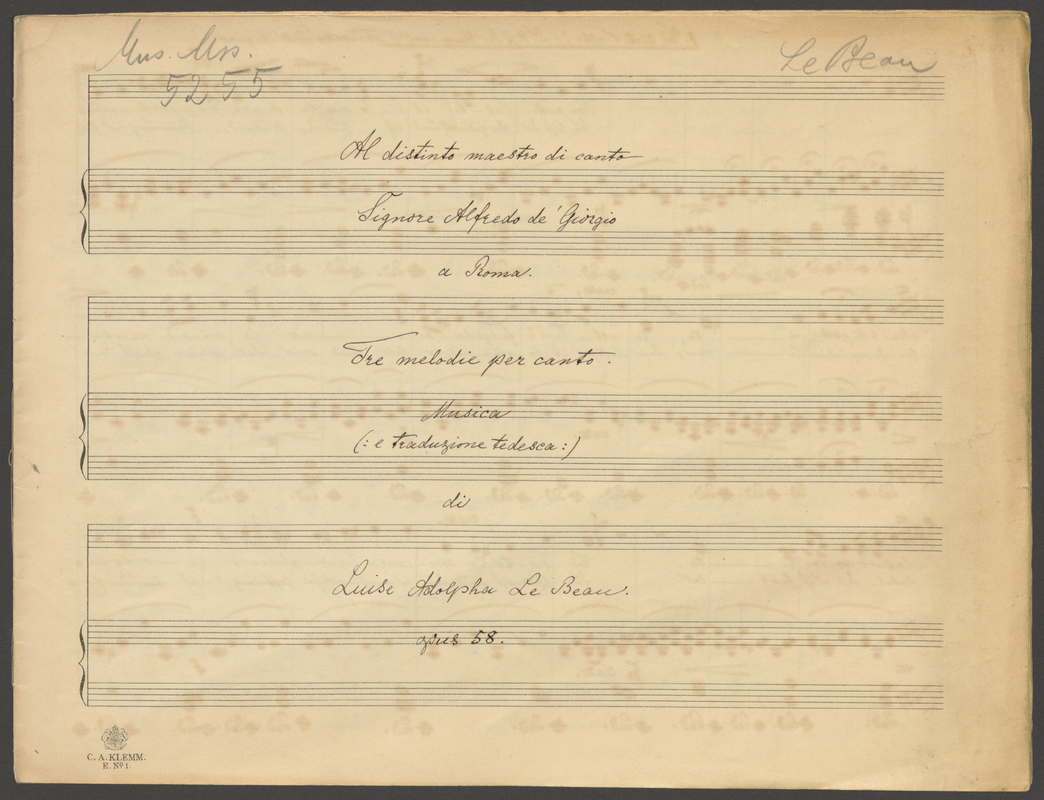 Mus. Mss.
5255
Le Beau
Al distinto maestro di canto
Signore Alfredo de' Giorgio
a Roma.
Tre melodie per canto.
Musica
(: e traduzione tedesca :)
di
Luise Adolpha Le Beau.
opus 58.
C. A. KLEMM.
E. No 1.